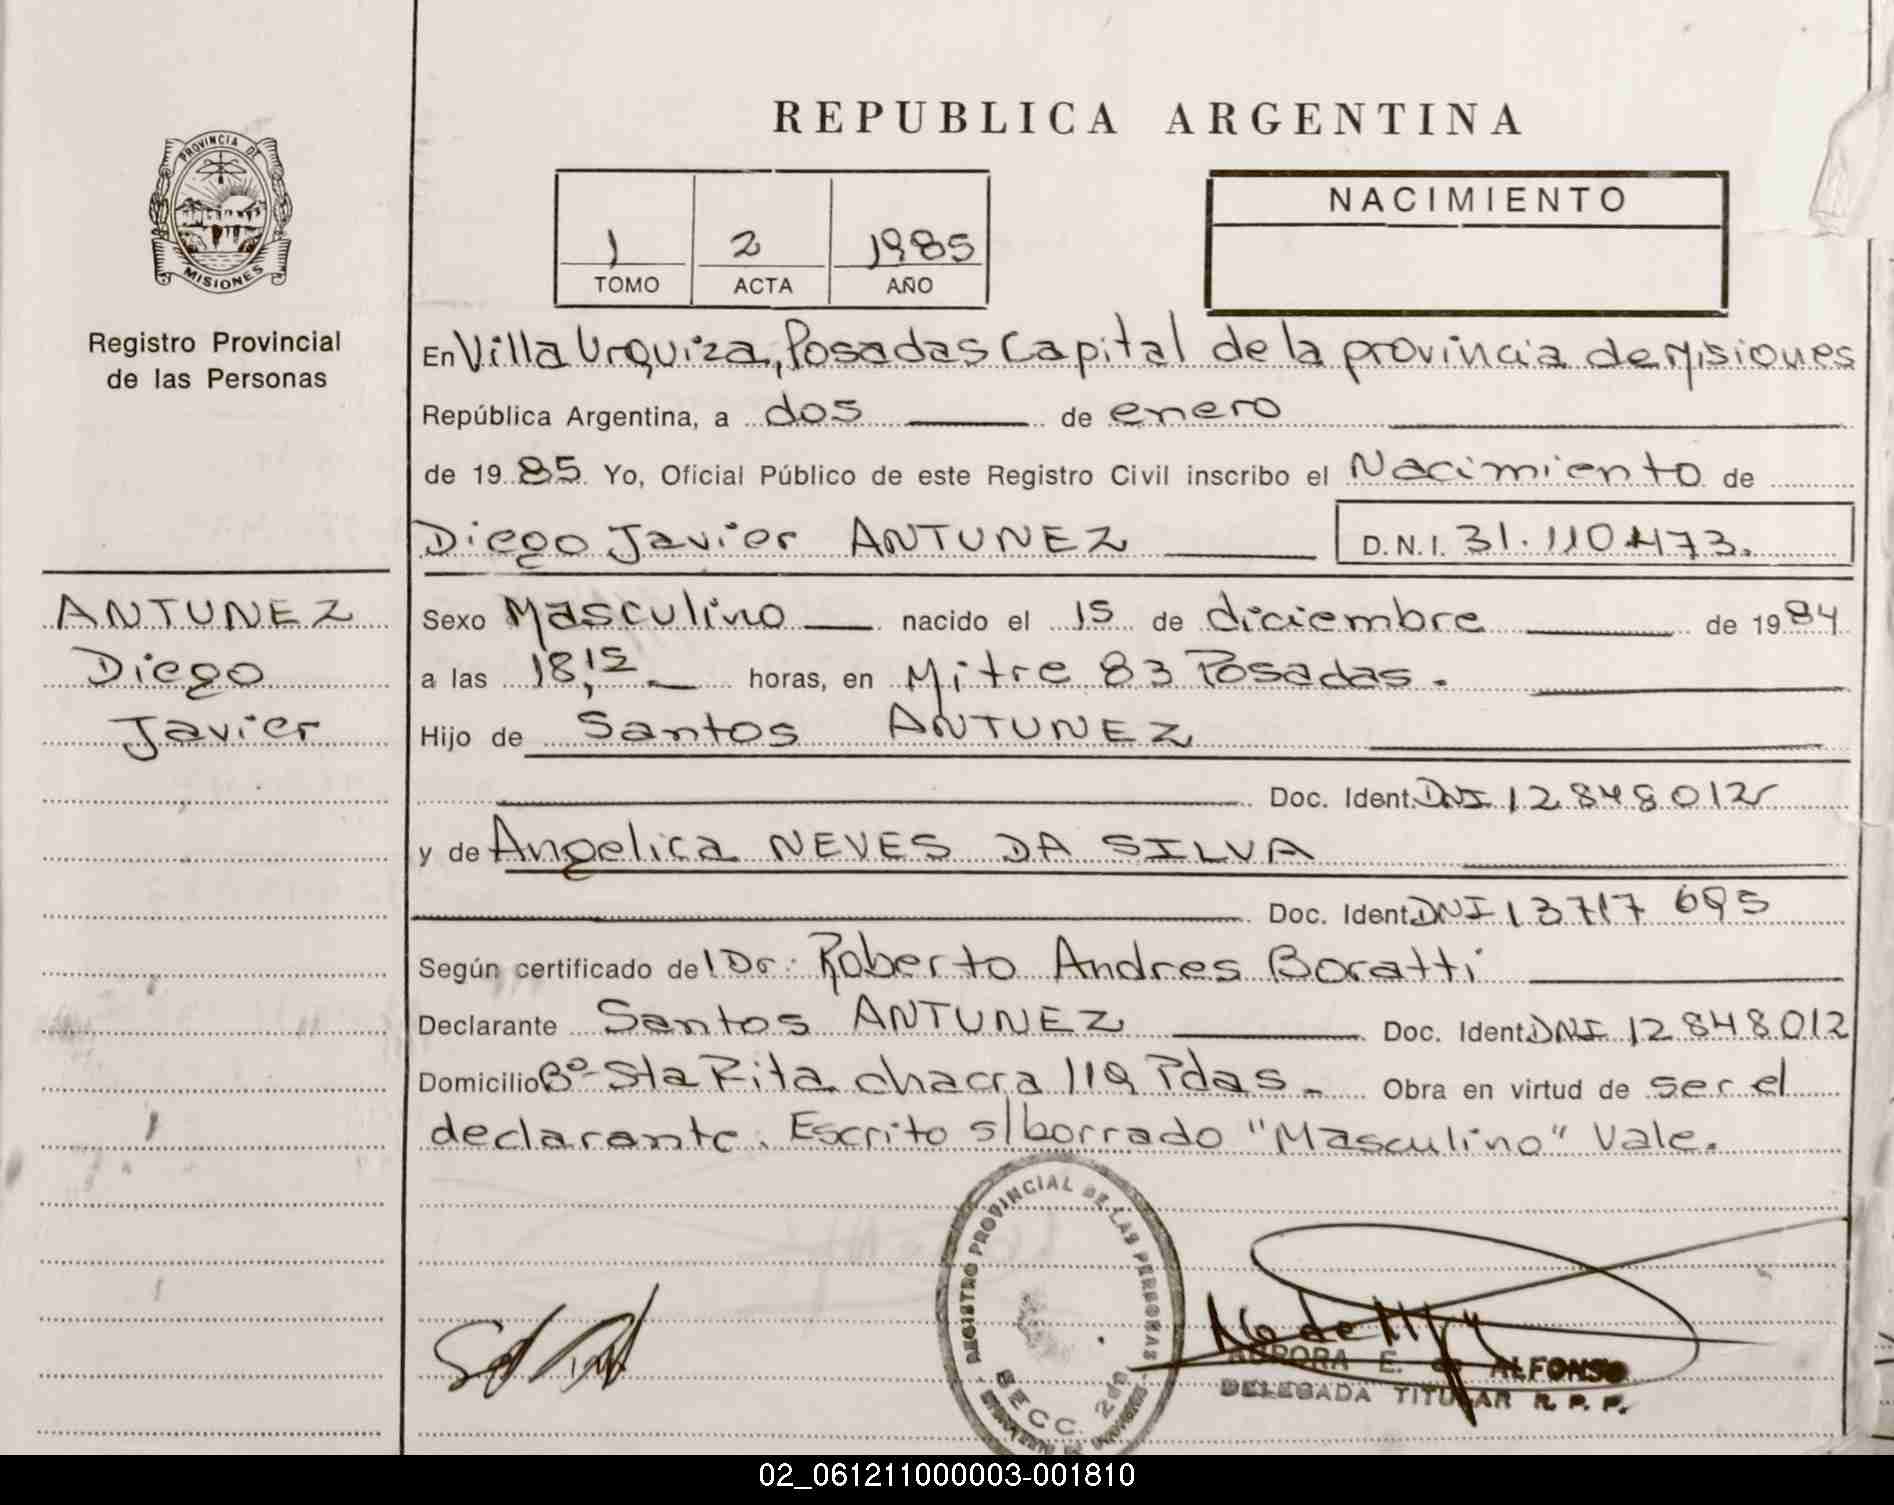 REPUBLICA ARGENTINA
PROVINCIA DE
MISIONES
Registro Provincial
de las Personas
1 2 1985
TOMO ACTA AÑO
NACIMIENTO
En Villa Urquiza, Posadas Capital de la provincia de Misiones
República Argentina, a dos de enero
de 1985 Yo, Oficial Público de este Registro Civil inscribo el Nacimiento de
Diego Javier ANTUNEZ D.N.I. 31.110.473.
ANTUNEZ
Diego
Javier
Sexo Masculino nacido el 15 de diciembre de 1984
a las 18,15 horas, en Mitre 83 Posadas.
Hijo de Santos ANTUNEZ
Doc. Ident. DNI 12848012
y de Angelica NEVES DA SILVA
Doc. Ident. DNI 13717 695
Según certificado del Dr. Roberto Andres Boratti
Declarante Santos ANTUNEZ Doc. Ident. DNI 12848012
Domicilio Bº Sta Rita chacra 119 Pdas. Obra en virtud de ser el
declarante. Escrito s/borrado "Masculino" Vale.
REGISTRO PROVINCIAL DE LAS PERSONAS
SECC. 2da
AURORA E. de ALFONSO
DELEGADA TITULAR R. P. P.
02_061211000003-001810